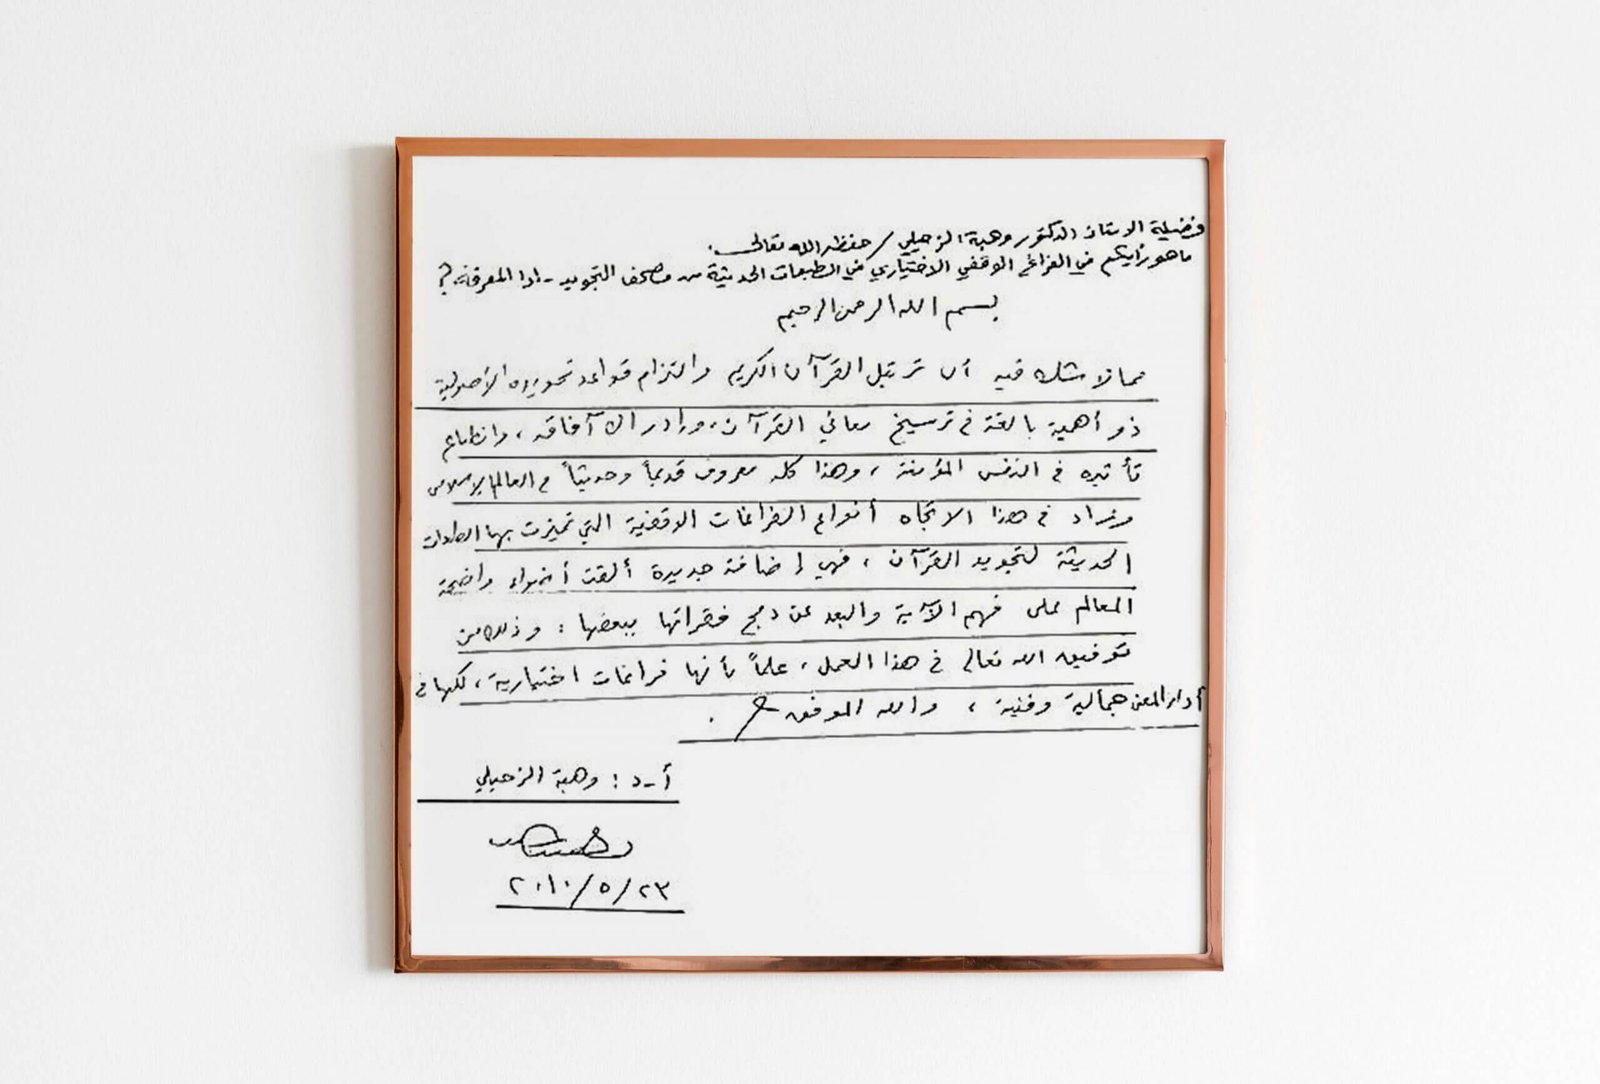 فضيلة الاستاذ الدكتور وهبة الزحيلي / حفظه الله تعالى.
ما هو رأيكم في الفراغ الوقفي الاختياري في الطبعات الحديثة من مصحف التجويد - دار المعرفة؟
بسم الله الرحمن الرحيم
مما لا شك فيه أن ترتيل القرآن الكريم والتزام قواعد تجويده الأصولية
ذو أهمية بالغة في ترسيخ معاني القرآن، وإدراك آفاقه، وانطباع
تأثيره في النفس المؤمنة، وهذا كله معروف قديماً وحديثاً في العالم الإسلامي
وزاد في هذا الاتجاه أنواع الفراغات الوقفية التي تميزت بها الطباعات
الحديثة لتجويد القرآن، فهي إضافة جديدة ألقت أضواء واضحة
المعالم على فهم الآية والبعد عن دمج فقراتها ببعضها: وذلك من
توفيق الله تعالى في هذا العمل، علماً بأنها فراغات اختيارية، لكنها في
أداء المعنى جمالية وفنية، والله الموفق.
أ-د: وهبة الزحيلي
٢٠١٠/٥/٢٣